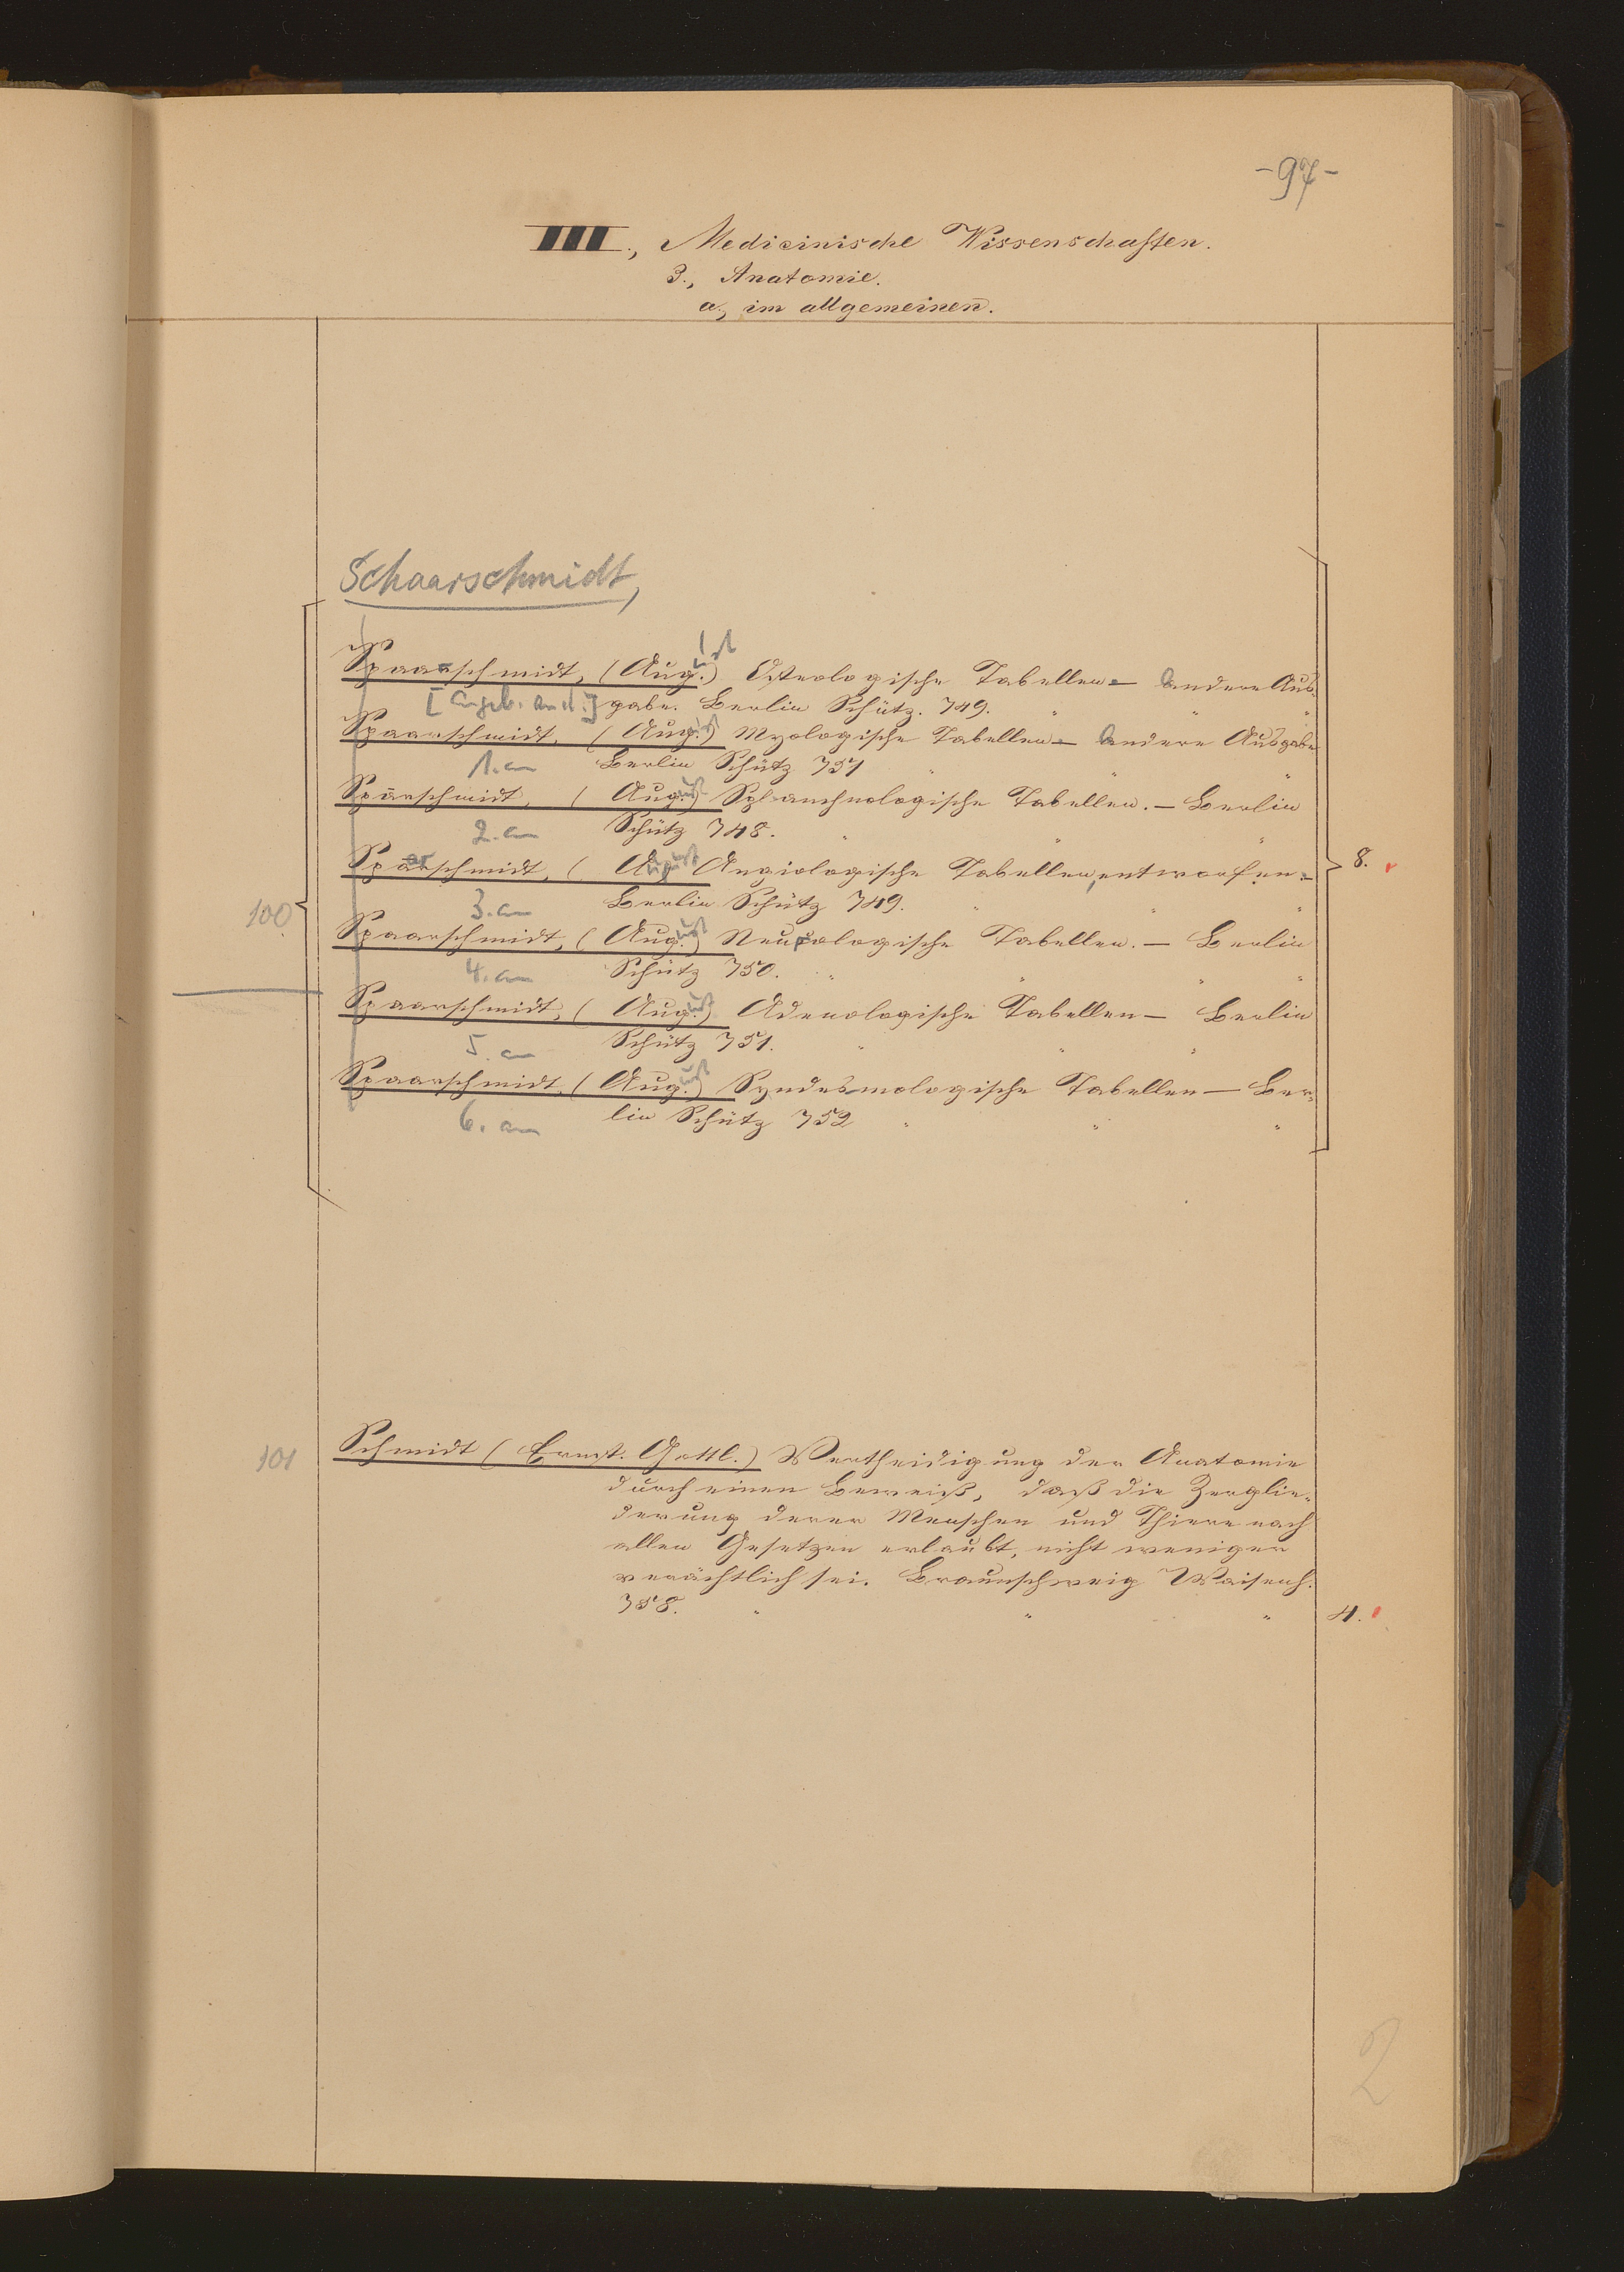 -97-
III., Medicinische Wissenschaften.
3., Anatomie.
a., im allgemeinen.
Schaarschmidt,
Spaarschmidt, (August) Osteologische Tabellen - Andere Aus-
[Angeb. an d.] gabe. Berlin Schütz. 749. " " "
Spaarschmidt, (August) Myologische Tabellen - Andere Ausgabe
1. an Berlin Schütz 751 " " "
Sparschmidt, (August) Splanchnologische Tabellen. - Berlin
2. an Schütz 748. " " "
Sparschmidt, (August Angiologische Tabellen, entworfen - 8.
100 3. an Berlin Schütz 749. " " "
Spaarschmidt, (August) Neurologische Tabellen. - Berlin
4. an Schütz 750. " " " "
Spaarschmidt, (August) Adenologische Tabellen - Berlin
5. an Schütz 751. " " "
Spaarschmidt, (August) Syndesmologische Tabellen - Ber-
6. an lin Schütz 752 " " "
101 Schmidt (Ernst. Gottl.) Vertheidigung der Anatomie
durch einen Beweiß, daß die Zerglie-
derung derer Menschen und Thiere nach
allen Gesetzen erlaubt, nicht weniger
verächtlich sei. Braunschweig Waisenh.
758. " " " 4.
2